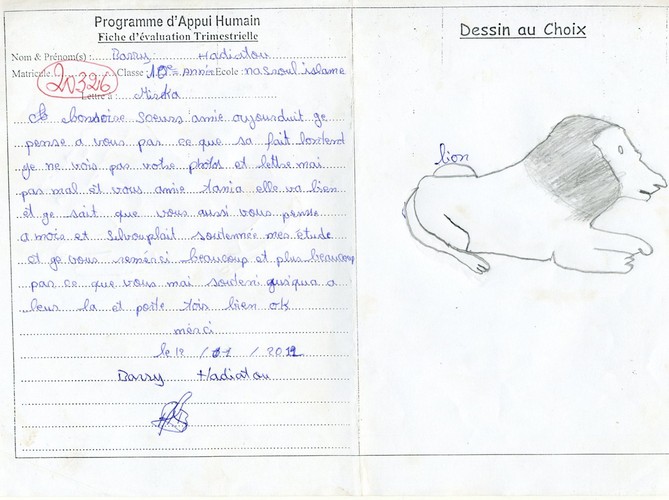 Programme d'Appui Humain
Fiche d'évaluation Trimestrielle
Nom & Prénom(s) : Barry Hadiatou
Matricule 20326 Classe : 10e Année Ecole : nasroul islame
Lettre à : Miska
bonsoire Soeurs amie oujourduit ge
pense a vous pas ce que sa fait lontend
ge ne vois pas votre photos et lettre mai
pas mal et vous amie tania elle va bien
et ge sait que vous aussi vous pense
a mois et Silvouplait soutennée mes étude
et ge vous remérci beaucoup et plus beaucoup
pas ce que vous mai souteni gusqua a
leus la et porte tois bien ok
merci
le 12 / 01 / 2012
Barry Hadiatou
Dessin au Choix
lion